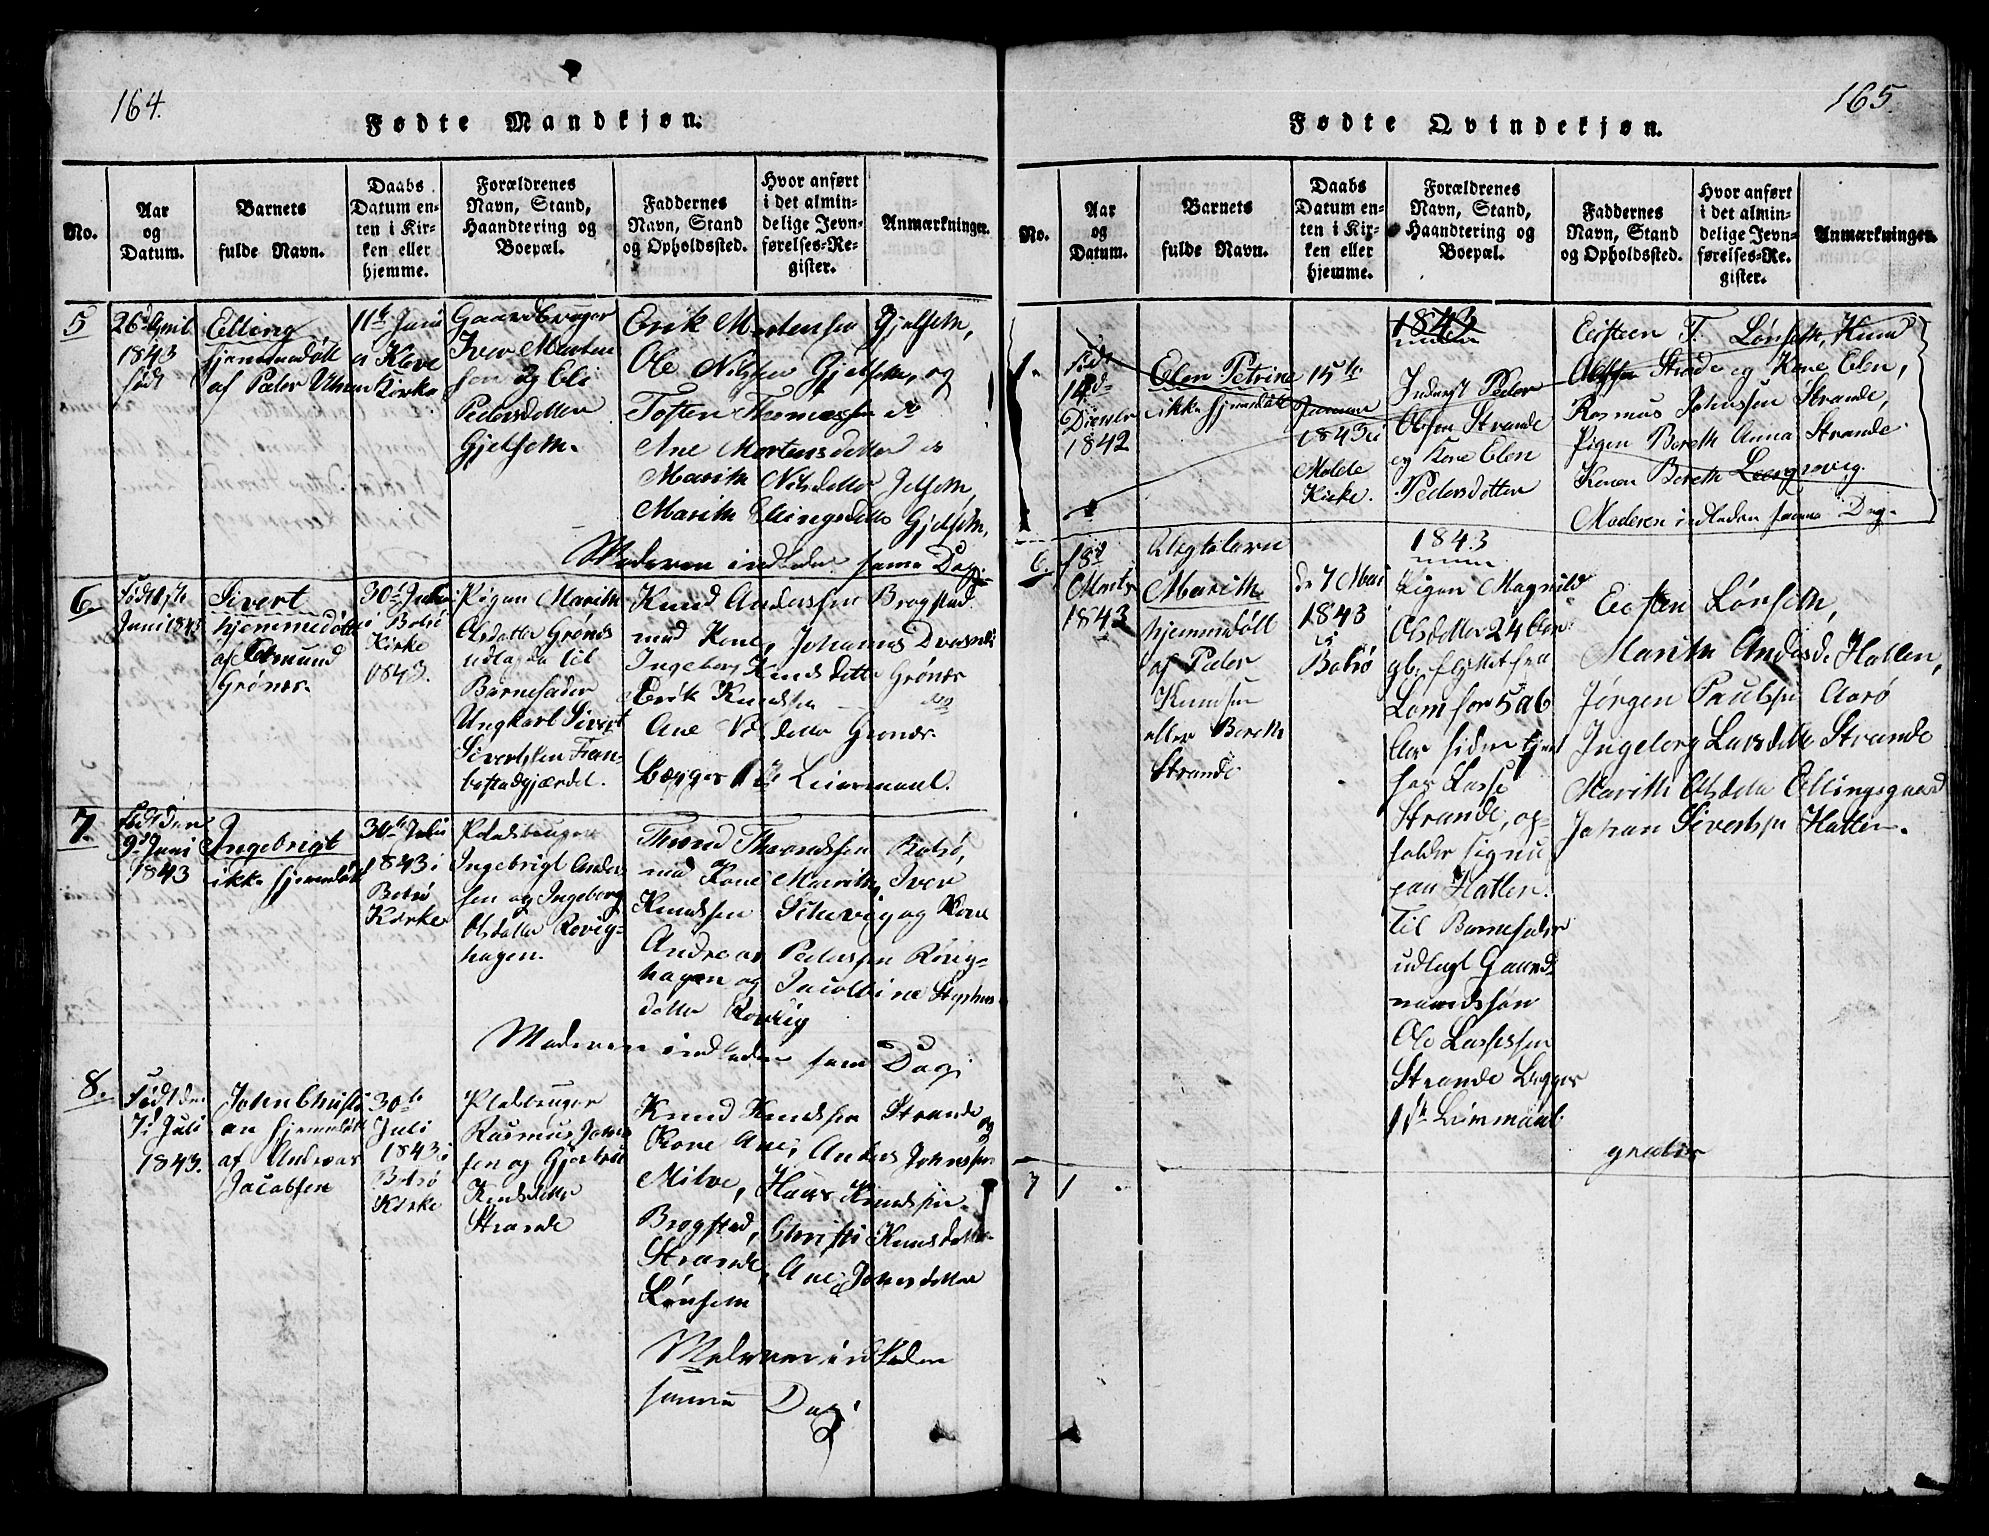 164.
Fødte Mandkjøn.
No.
Aar
og
Datum.
Barnets
fulde Navn.
Daabs
Datum en-
ten i Kir-
ken eller
hjemme.
Forældrenes
Navn, Stand,
Haandtering og
Boepæl.
Faddernes
Navn, Stand
og Opholdssted.
Hvor anført
i det almin-
delige Jevn-
førelses-Re-
gister.
Anmærkninger.
5
26d April
1843
født
Elling
hjemmedøbt
af Peder
11te Juni
i Kleve
Kirke
Gaardbruger
Iver Morten
sen og Eli
Pedersdatter
Gjelseth.
Erik Mortensen Gjelseth,
Ole Nilssen Gjelseth, og
Tosten Thomassen
Ane Mortensdatter
Marith Nilsdatter Jelseth,
Marith Ellingsdatter Gjelseth,
Moderen indleden samme Dag.
6.
Født
Juni 1843
Sivert
hjemmedøbt
af
Grønes.
30te Juli
i Bolsø
Kirke
1843.
Pigen Marith
Olsdatter Grønes
udlagde til
Barnefader
Ungkarl Sivert
Sivertsen
Knud Anderssen Brogstad
med Kone, Johannes
Ingeborg Knudsdatter Grønes
Erik Knudsen
Ane Nilsdatter Grønes.
Begges 1ste Leiermaal.
7.
Født den
9d Juni
1843
Ingebrigt
ikke hjemmedøbt
30te Juli
1843 i
Bolsø
Kirke
Pladsbruger
Ingebrigt Ander-
sen og Ingeborg
Olsdatter Røvig-
hagen.
Thrond Throndssen Bolsø,
med Kone Marith, Iver
Knudssen og Kone
Andreas Pederssen Røvig-
hagen og Jacobine
datter Røvig
Moderen indleden samme Dag.
8.
Født den
7d Juli
1843.
John Christi
an hjemmedøbt
af Andreas
Jacobsen
30te
Juli
1843 i
Bolsø
Kirke
Pladsbruger
Rasmus Johns
sen og
Knudsdatter
Strande
Knud Knudsen Strande og
Kone Ane, Anders Johnssen
Milve, Hans Knudsen
Brogstad, Christi Knudsdatter
Strande, Ane Johnsdatter
Lønseth
Moderen indleden
samme Dag.
165.
Fødte Qvindekjøn.
No.
Aar
og
Datum.
Barnets
fulde Navn.
Daabs
Datum en-
ten i Kir-
ken eller
hjemme.
Forældrenes
Navn, Stand,
Haandtering og
Boepæl.
Faddernes
Navn, Stand
og Opholdssted.
Hvor anført
i det almin-
delige Jevn-
førelses-Re-
gister.
Anmærkninger.
1.
født
14d
December
1842
Elen Petrine
ikke hjemmedøbt
15te
Januar
1843 i
Molde
Kirke.
1843
Inderst Peder
Olsen Strande
og Kone Elen
Pedersdatter
Eisteen T. Lønseth, Knud
Strade og Kone Elen,
Rasmus Johnssen Strande,
Pigen Bereth Anna Strande
Konen Bereth Leergrovig.
Moderen indleden samme Dag.
6.
18d
Marts
1843
Ægtebarn
Marith
hjemmedøbt
af Peder
Knudsen
eller Bereth
Strande
d 7 Mai
1843
i
Bolsø
1843
Pigen Magnild
Olsdatter 24 Aar
gl. flyttet fra
Lom for 5 a 6
Aar siden tjent
hos Lasse
Strande, op-
holder sig nu
paa Hatlen.
Til Barnefader
udlagt Gaard
mandssøn
Ole Lassessen
Strande Begges
1ste Leiermaal.
Eisten Lønseth,
Marith Andersd. Hatlen,
Jørgen Paulsen Aarø
Ingeborg Larsdatter Strande
Marith Olsdatter Ellingsgaard
Johan Sivertsen Hatlen.
gratis
7
1